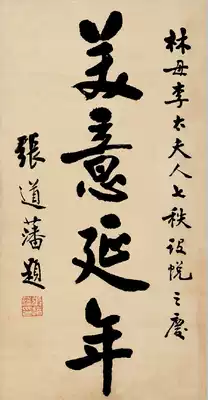 林母李太夫人七秩設帨之慶
美意延年
張道藩題